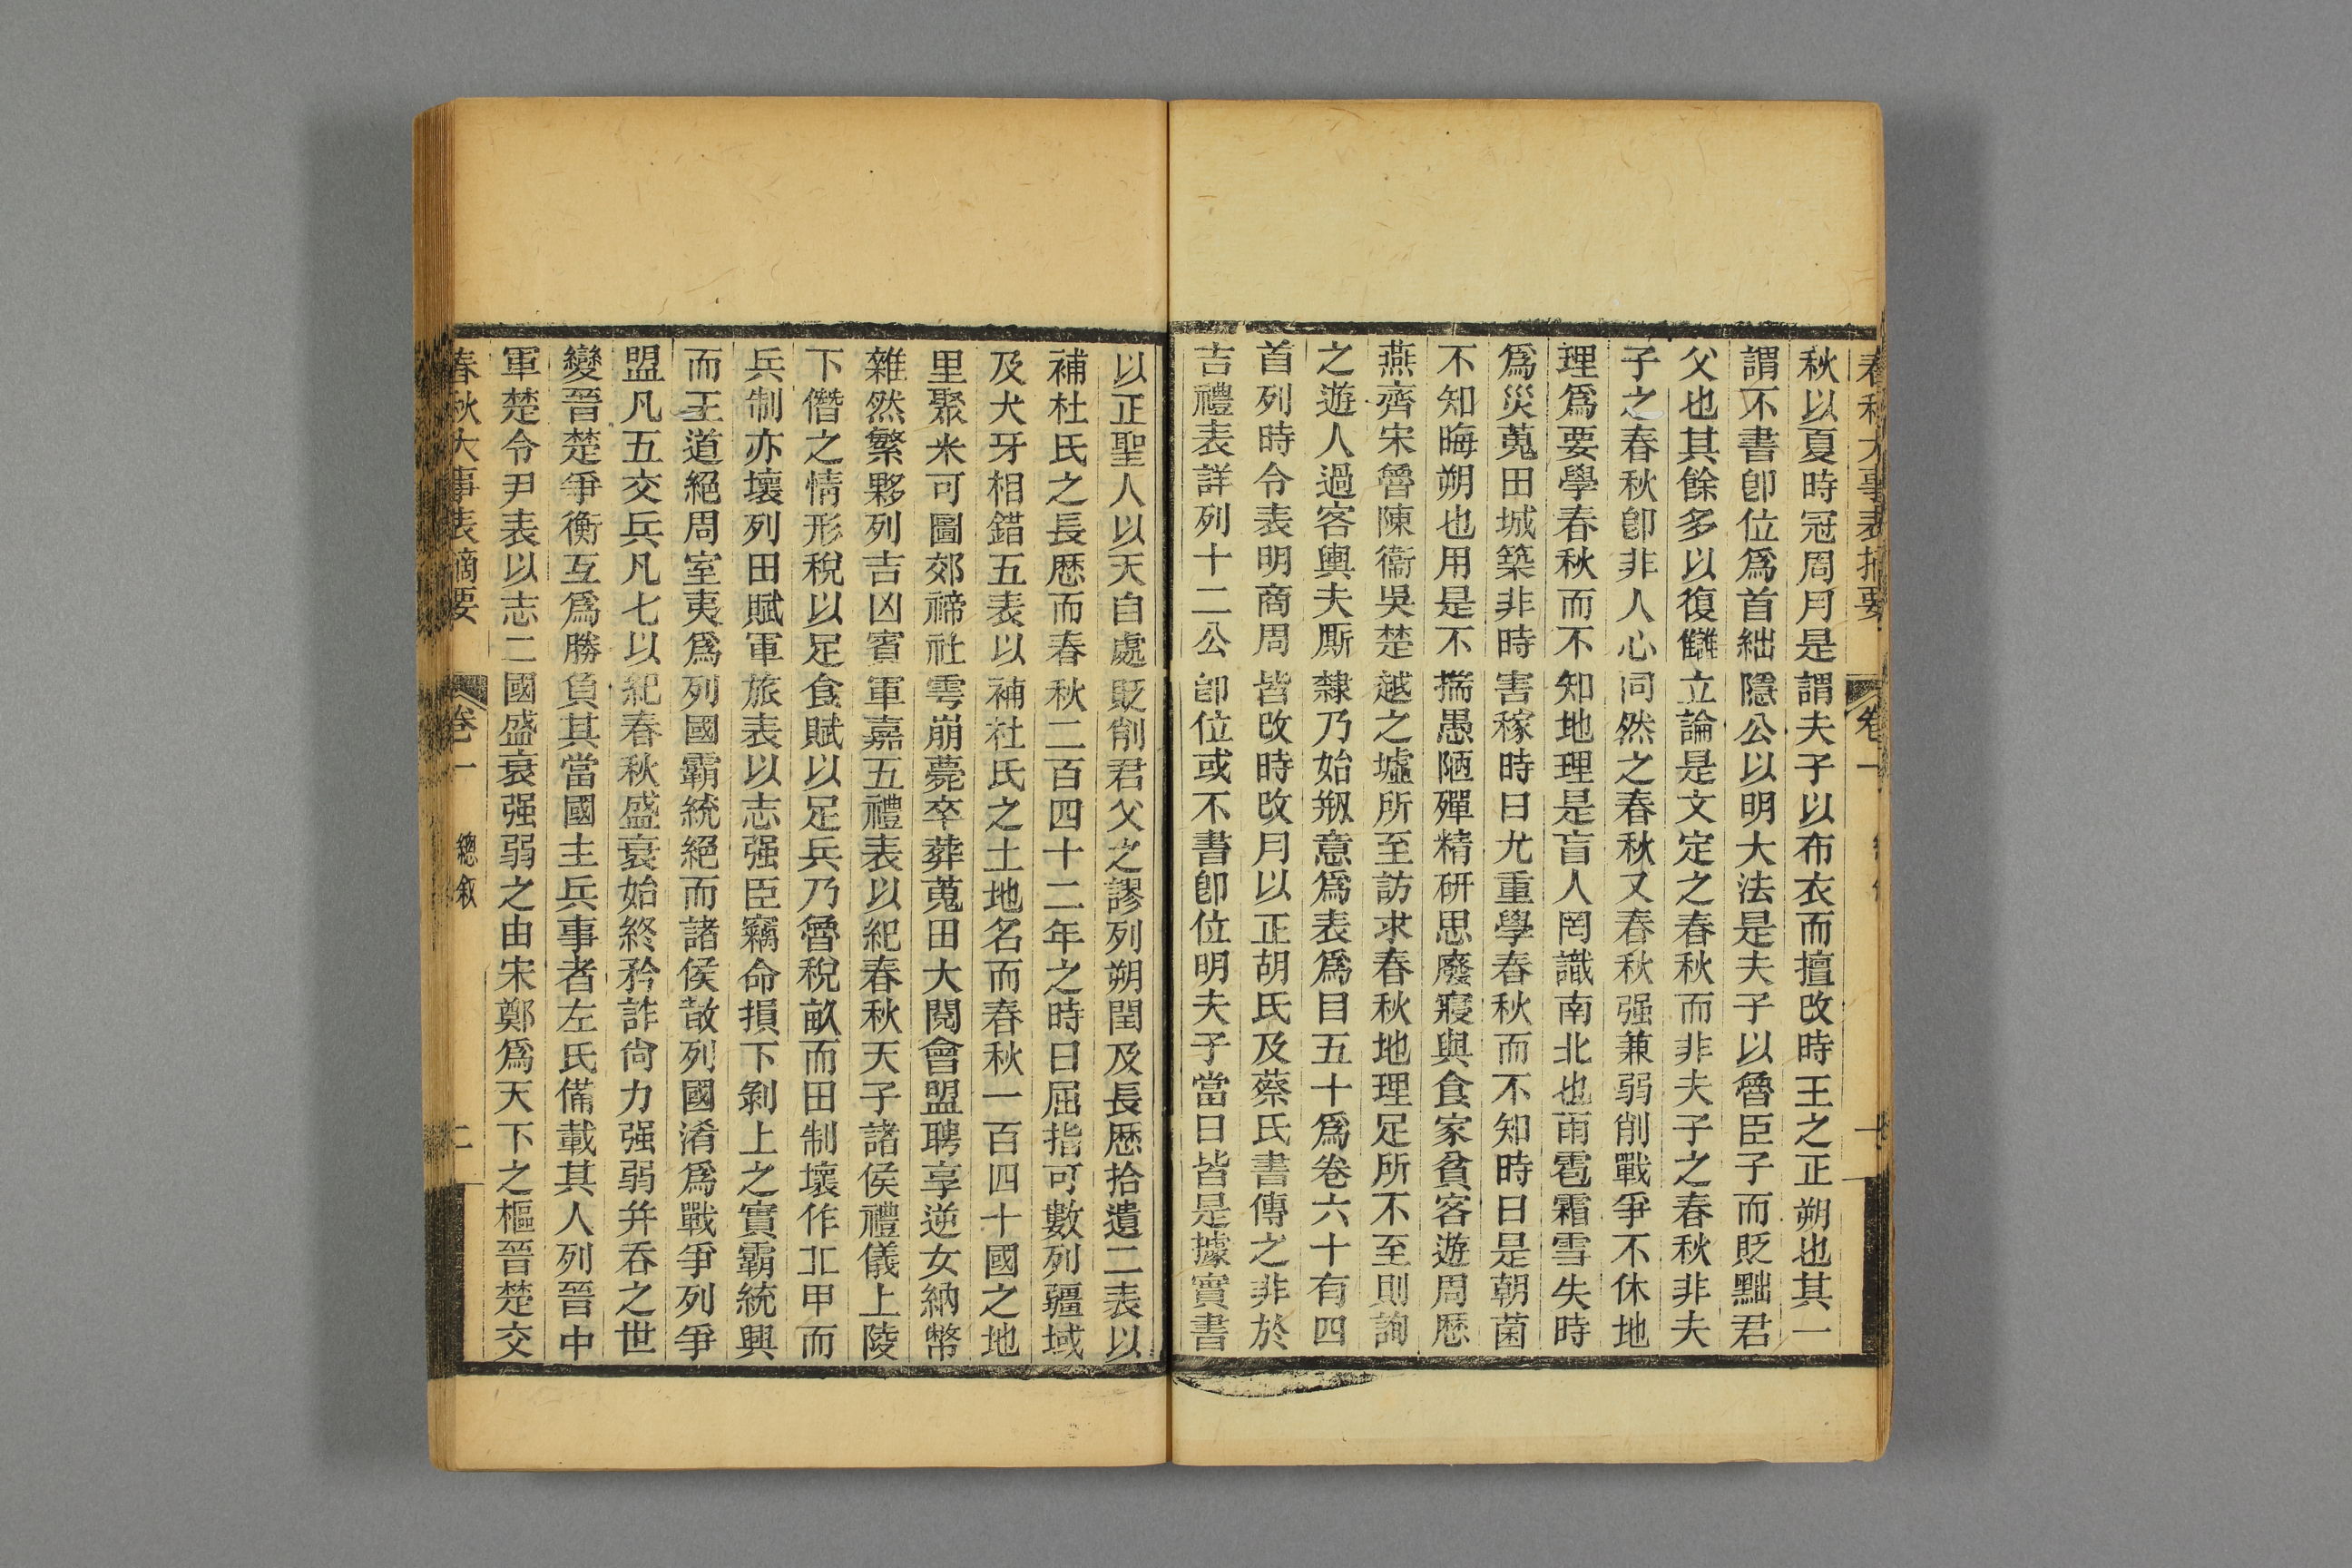 春秋大事表摘要 卷一 一
秋以夏時冠周月是謂夫子以布衣而擅改時王之正朔也其一
謂不書卽位爲首絀隱公以明大法是夫子以魯臣子而貶黜君
父也其餘多以復讎立論是文定之春秋而非夫子之春秋非夫
子之春秋卽非人心同然之春秋又春秋强兼弱削戰爭不休地
理爲要學春秋而不知地理是盲人罔識南北也雨雹霜雪失時
爲災蒐田城築非時害稼時日尤重學春秋而不知時日是朝菌
不知晦朔也用是不揣愚陋殫精研思廢寢與食家貧客遊周歷
燕齊宋魯陳衞吳楚越之墟所至訪求春秋地理足所不至則詢
之遊人過客輿夫厮隸乃始剏意爲表爲目五十爲卷六十有四
首列時令表明商周皆改時改月以正胡氏及蔡氏書傳之非於
吉禮表詳列十二公卽位或不書卽位明夫子當日皆是據實書
以正聖人以天自處貶削君父之謬列朔閏及長歷拾遺二表以
補杜氏之長歷而春秋二百四十二年之時日屈指可數列疆域
及犬牙相錯五表以補杜氏之土地名而春秋一百四十國之地
里聚米可圖郊禘社雩崩薨卒葬蒐田大閱會盟聘享逆女納幣
雜然繁夥列吉凶賓軍嘉五禮表以紀春秋天子諸侯禮儀上陵
下僭之情形稅以足食賦以足兵乃魯稅畝而田制壞作丘甲而
兵制亦壞列田賦軍旅表以志强臣竊命損下剝上之實霸統興
而王道絕周室夷爲列國霸統絕而諸侯散列國淆爲戰爭列爭
盟凡五交兵凡七以紀春秋盛衰始終矜詐尙力强弱幷吞之世
變晉楚爭衡互爲勝負其當國主兵事者左氏備載其人列晉中
軍楚令尹表以志二國盛衰强弱之由宋鄭爲天下之樞晉楚交
春秋大事表摘要 卷一 總敘 二